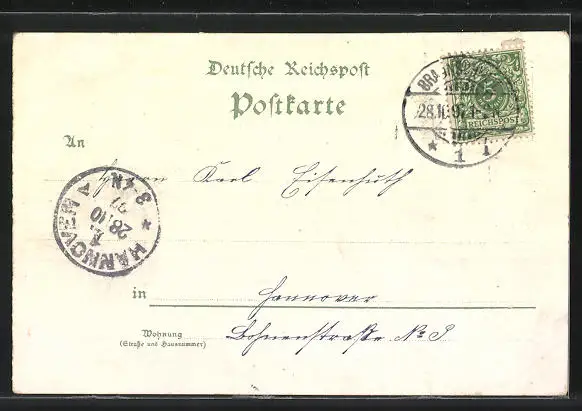 Deutsche Reichspost
Postkarte
28.10.97
REICHSPOST
* 1 I
An
Herrn Karl Eisenhuth
HANNOVER
1
28.10
97
3-4N.
in Hannover
Wohnung
(Straße und Hausnummer)
Bohnenstraße No